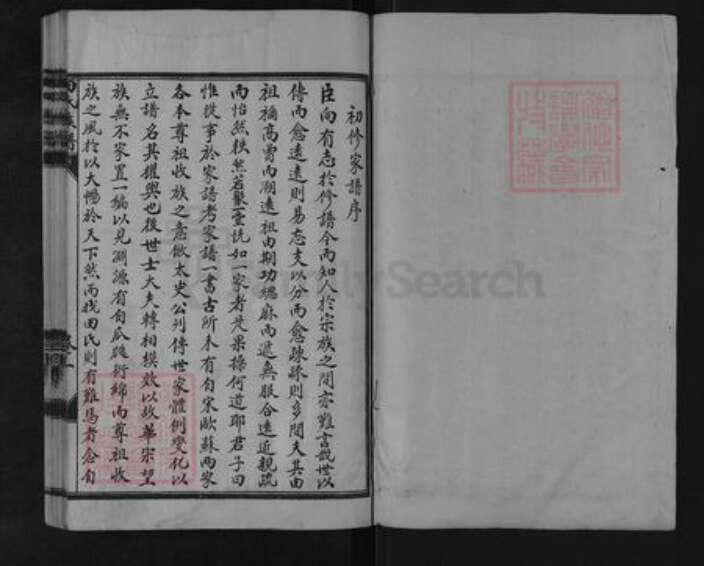 初修家譜序
臣向有志於修譜今而知人於宗族之間亦難言哉世以
傳而愈遠遠則易忘支以分而愈疎疎則多間夫其由
祖禰高曾而溯遠祖由期功緦麻而遞無服合遠近親疏
而怡然秩然若聚一堂恍如一家者是果操何道耶君子曰
惟從事於家譜考家譜一書古所未有自宋歐蘇兩家
各本尊祖收族之意倣太史公列傳世家體例變化以
立譜名其權輿也後世士大夫轉相模效以故華宗望
族無不家置一編以見淵源有自瓜瓞衍綿而尊祖收
族之風於以大暢於天下然而我田氏則有難焉者念自
FamilySearch